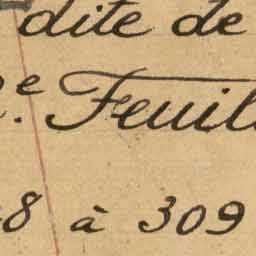 dite de
e Feuil
8 à 309